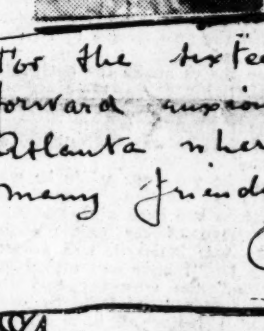 For the sixtee
forward anxiou
Atlanta wher
many friend